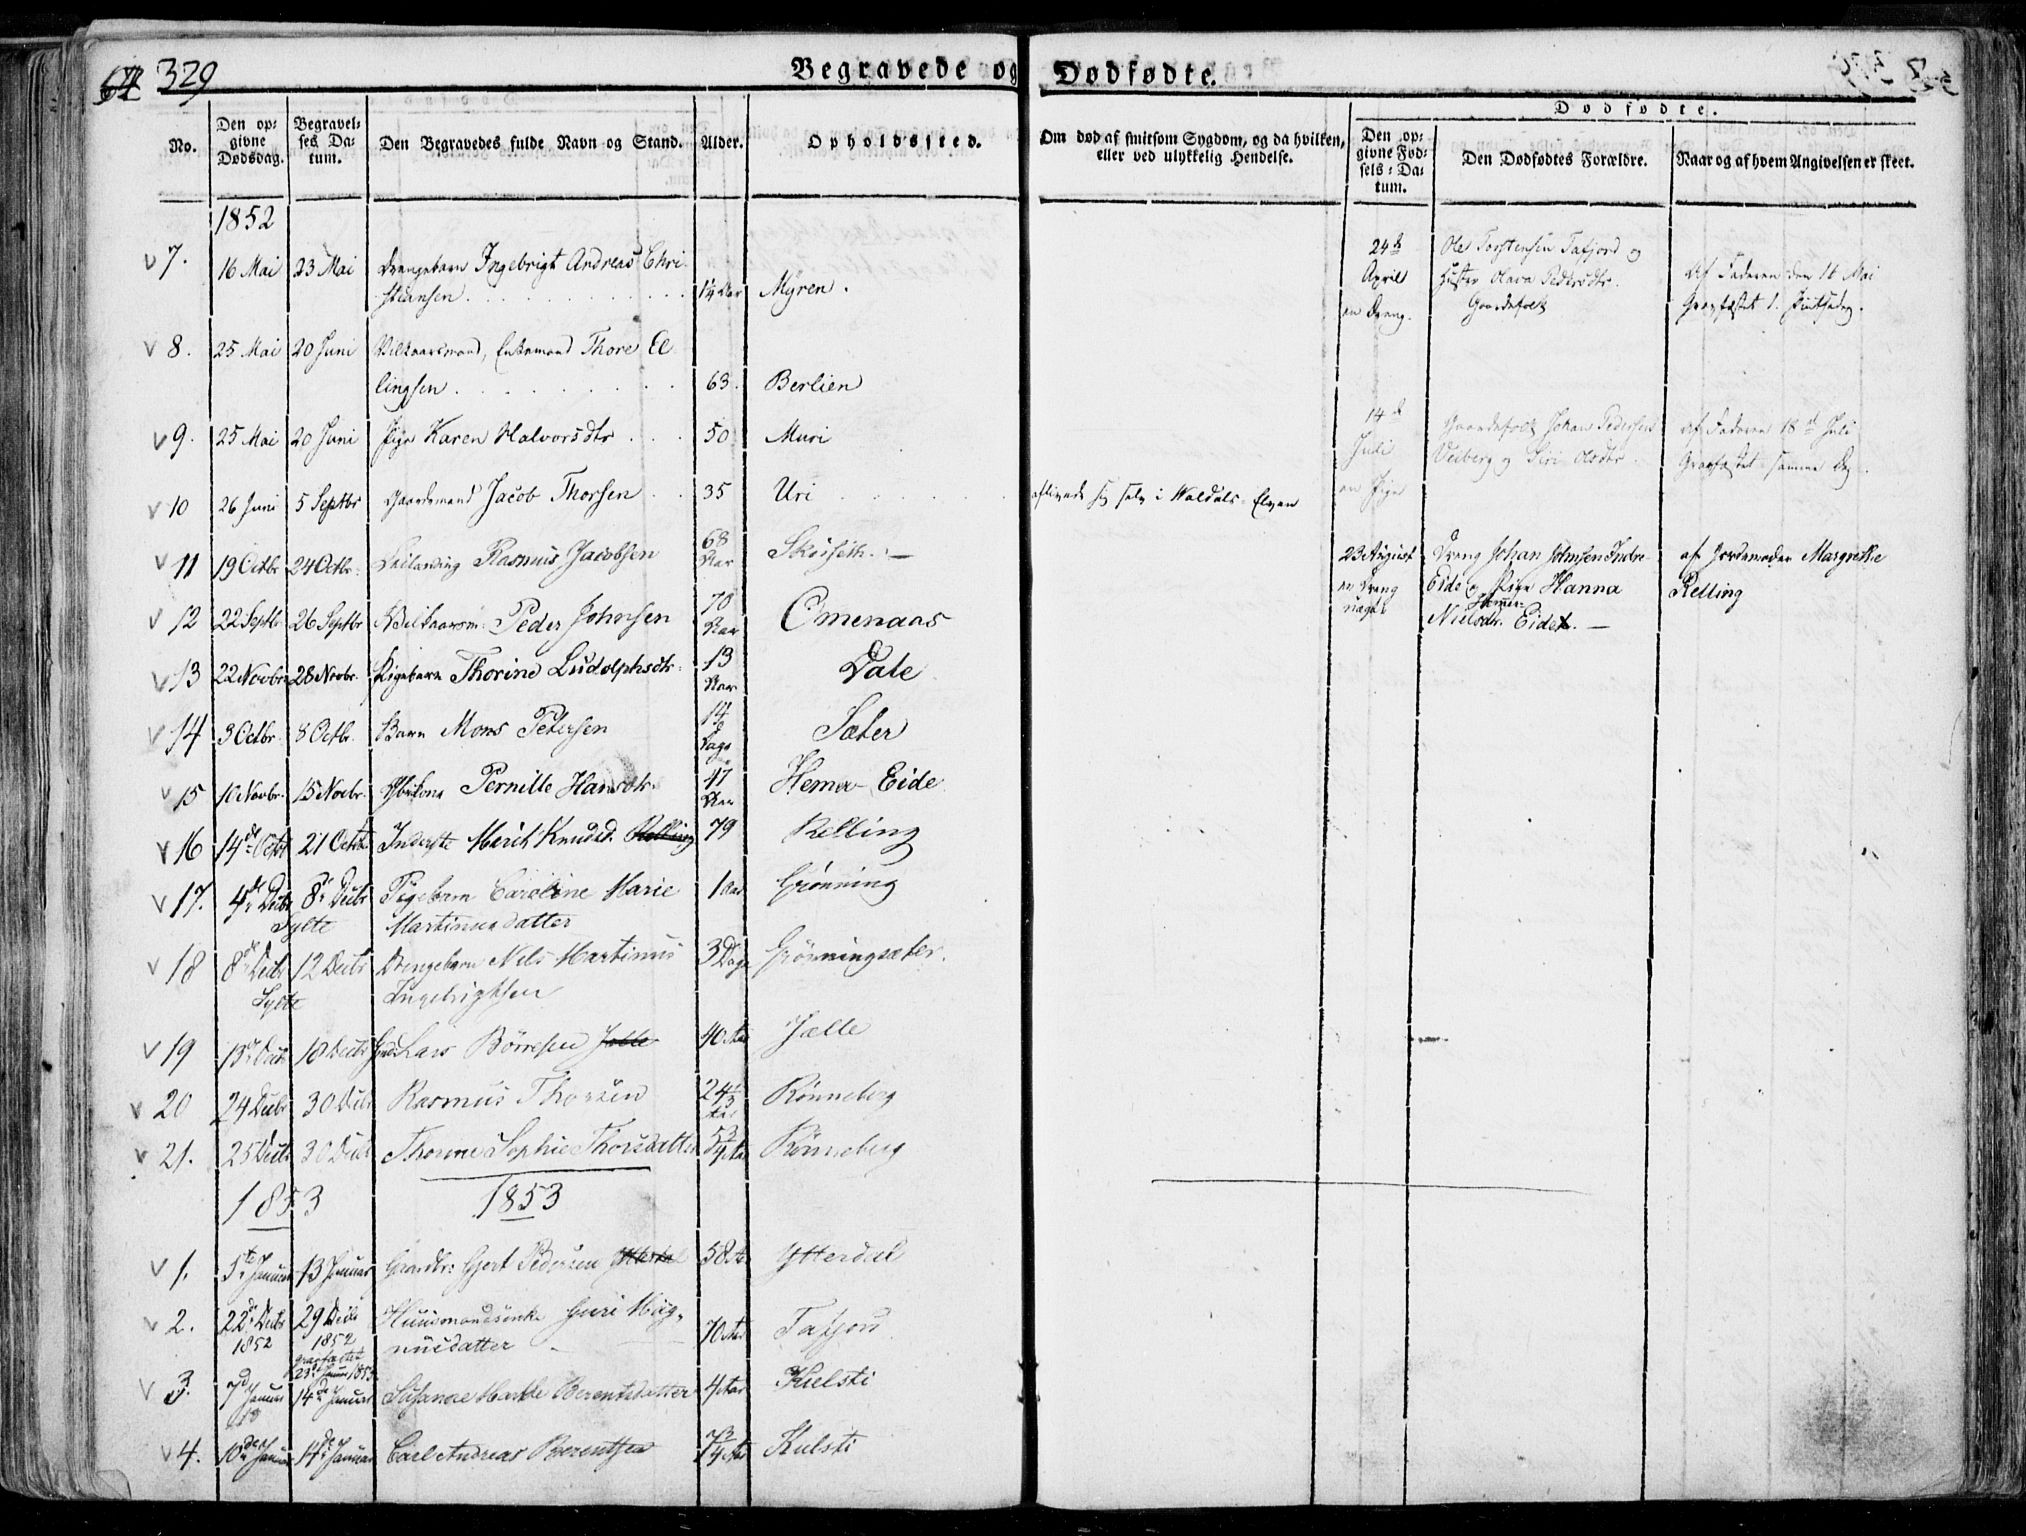 329
Begravede og Dødfødte.
No.
Den opgivne Dødsdag.
Begravelses Datum.
Den Begravedes fulde Navn og Stand.
Alder.
Opholdssted.
Om død af smitsom Sygdom, og da hvilken, eller ved ulykkelig Hendelse.
Dødfødte.
Den opgivne Fødsels-Datum.
Den Dødfødtes Forældre.
Naar og af hvem Angivelsen er skeet.
1852
7. 16 Mai 23 Mai Drengebarn Ingebrigt Andreas Chri-
stiansen Myren.
8. 25 Mai 20 Juni Vilkaarsmand, Enkemand Thore El-
lingsen 63. Berlien
9. 25 Mai 20 Juni Pige Karen Halvorsdtr 50 Muri
10 26 Juni 5 Septbr Gaardmand Jacob Thorsen 35 Uri aflivede sig selv i Waldals-Elven
11 19 Octbr 24 Octbr. Rasmus Jacobsen 68 Aar
12 22 Septbr 26 Septbr Peder Johnsen 70 Aar Omenaas
13 22 Novbr. 28 Novbr. Pigebarn Thorine Ludolphsdtr. 13 Aar Dale
14 3 Octbr. 8 Octbr. Barn Mons Petersen 14 Dage Sæter
15 10 Novbr. 15 Novbr. Pernille Hansdtr. 47 Aar Eide
16 14de Octbr 21 Octbr Inderste Marit Knudsd. Relling 79 Relling
17. 4de Decbr 8de Decbr Pigebarn Caroline Marie 1 Aar Grønning
Sylte Martinusdatter
18 8de Decbr 12 Decbr Drengebarn Nils Martinus 3 Dage Grønningsæter.
Sylte Ingebrigtsen
19 13de Decbr 18 Decbr Lars Børresen Jælle 40 Aar Jælle
20 24 Decbr 30 Decbr Rasmus Thorsen Rønneberg
21. 25 Decbr 30 Decbr Thorine Sophie Thorsdatter Rønneberg
1853 1853
1. 5te Januar 13 Januar Gjert Pedersen Ytterdal 58 Ytterdal
2. 22de Decbr 29 Decbr Huusmandsenke Guri Mag-
1852 1852 nusdatter 70 Aar Tafjord
gravfæstet
23de Januar 1853
3. 7de Januar 14de Januar Susanne Marthe Berentsdatter 4 Aar Kielsti
4. 10de Januar 14de Januar Carl Andreas Berentsen Kulsti
24de Ole Torstensen Tafjord og
April Hustru Olava Pedersdtr. Af Faderen den 18 Mai
en Dreng. Gaardfolk Gravfæstet 1. Pintsedag.
14de Gaardfolk Johan Pedersen af Faderen 18de Juli
Juli Veiberg og Siri Olsdtr. Gravfæstet samme Dag.
en Pige
23 August Dreng Johan Johnsen Indre- af Jordemoder Margrethe
en Dreng Eide og Pige Hanna Relling
uægte Nielsdtr. Eidet.